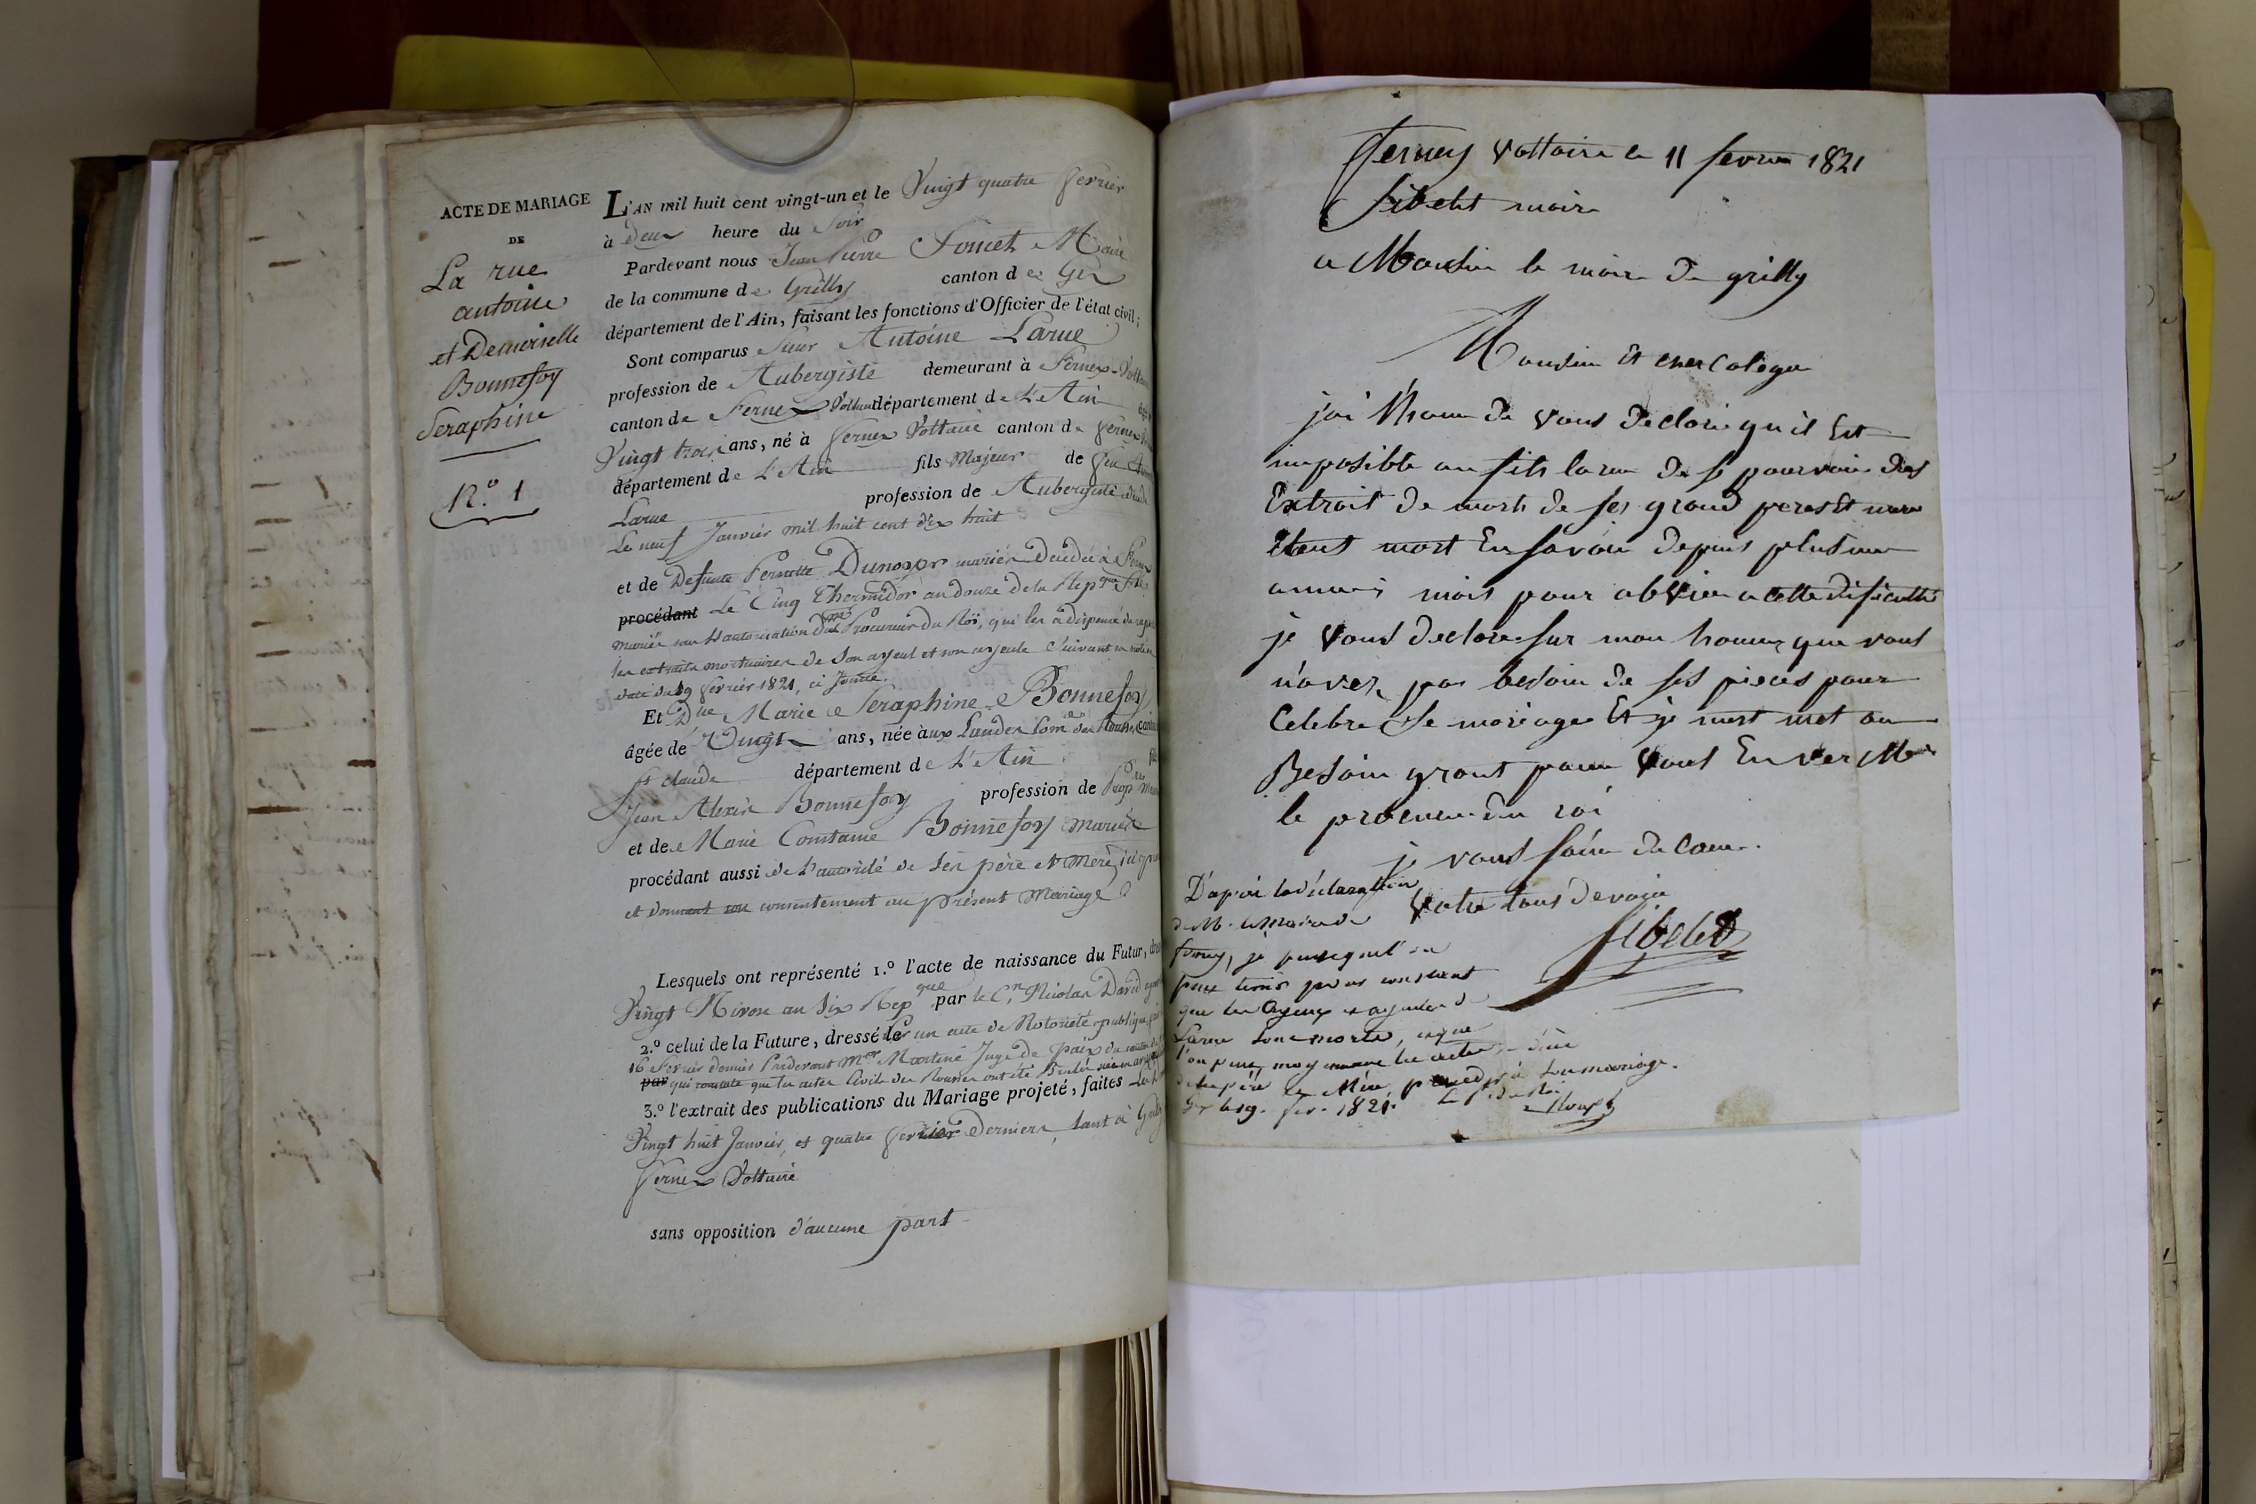 ACTE DE MARIAGE
DE
La rue
antoine
et Demoiselle
Bonnefoy
Seraphine
N.º 1
L'AN mil huit cent vingt-un et le Vingt quatre fevrier
à Deux heure du Soir
Pardevant nous Jean Pierre Foncet Maire
de la commune de Grilly canton de Gex
département de l'Ain, faisant les fonctions d'Officier de l'état civil;
Sont comparus Sieur Antoine Larue
profession de Aubergiste demeurant à Fernex-
canton de Fernex Voltaire département de L'Ain
Vingt trois ans, né à fernex Voltaire canton de fernex
département de L'Ain fils Majeur de feu
Larue profession de Aubergiste
Le neuf Janvier mil huit cent dix huit
et de Defunte Pernette Dunoyer mariés Décédée à
procédant Le Cinq Thermidor an douze de la Rep
sous L'autorisation Procureur du Roi, qui les a dispensé
les extraits mortuaires de Son ayeul et son ayeule Suivant
date du 19 fevrier 1821, ci Jointe.
Et Dlle Marie Seraphine Bonnefoy
âgée de Vingt ans, née aux Landes Com
St claude département de L'Ain
Jean Alexis Bonnefoy profession de
et de Marie Constance Bonnefoy mariés
procédant aussi de L'autorité de Ses père et Mère
et donnant consentement au présent Mariage
Lesquels ont représenté 1.º l'acte de naissance du Futur,
Vingt Nivose an Six Rep que par le Cn Nicolas David
2.º celui de la Future, dressé le Par un acte de Notoriété publique
16 fevrier dernier Pardevant Mer Martine Juge de paix du canton
par qui constate que les actes Civils des Rousses ont été Brulés
3.º l'extrait des publications du Mariage projeté, faites
Vingt huit Janvier, et quatre fevrier Derniers, tant à
fernex Voltaire
sans opposition d'aucune part
Ferney Voltaire le 11 fevrier 1821
maire
a Monsieur le maire de grilly
Monsieur Et cher Colegue
j'ai l'honeur de vous declarer qu'il Est
imposible au fils larue de se pourvoir des
Extrait de morts de ses grand peres Et mere
Etant mort En savoie depuis plusieur
annees mais pour obvier a cette dificulté
je vous declare sur mon honeur que vous
n'avez pas besoin de ses pieces pour
Celebre le mariage Et je me met au
Besoin grant pour vous En ver Mr
le procureur du roi
je vous salue de Coeur.
votre tous devoué
D'après la déclaration
de M. le Maire de
ferney, je pense qu'il
peut tenir pour constant
que les Ayeux et ayeules de
Larue sont morts, et que
l'on peut, moyennant les actes
de père et Mère, procéder à son mariage.
Gex le 19. fev. 1821. Le p. du Roi